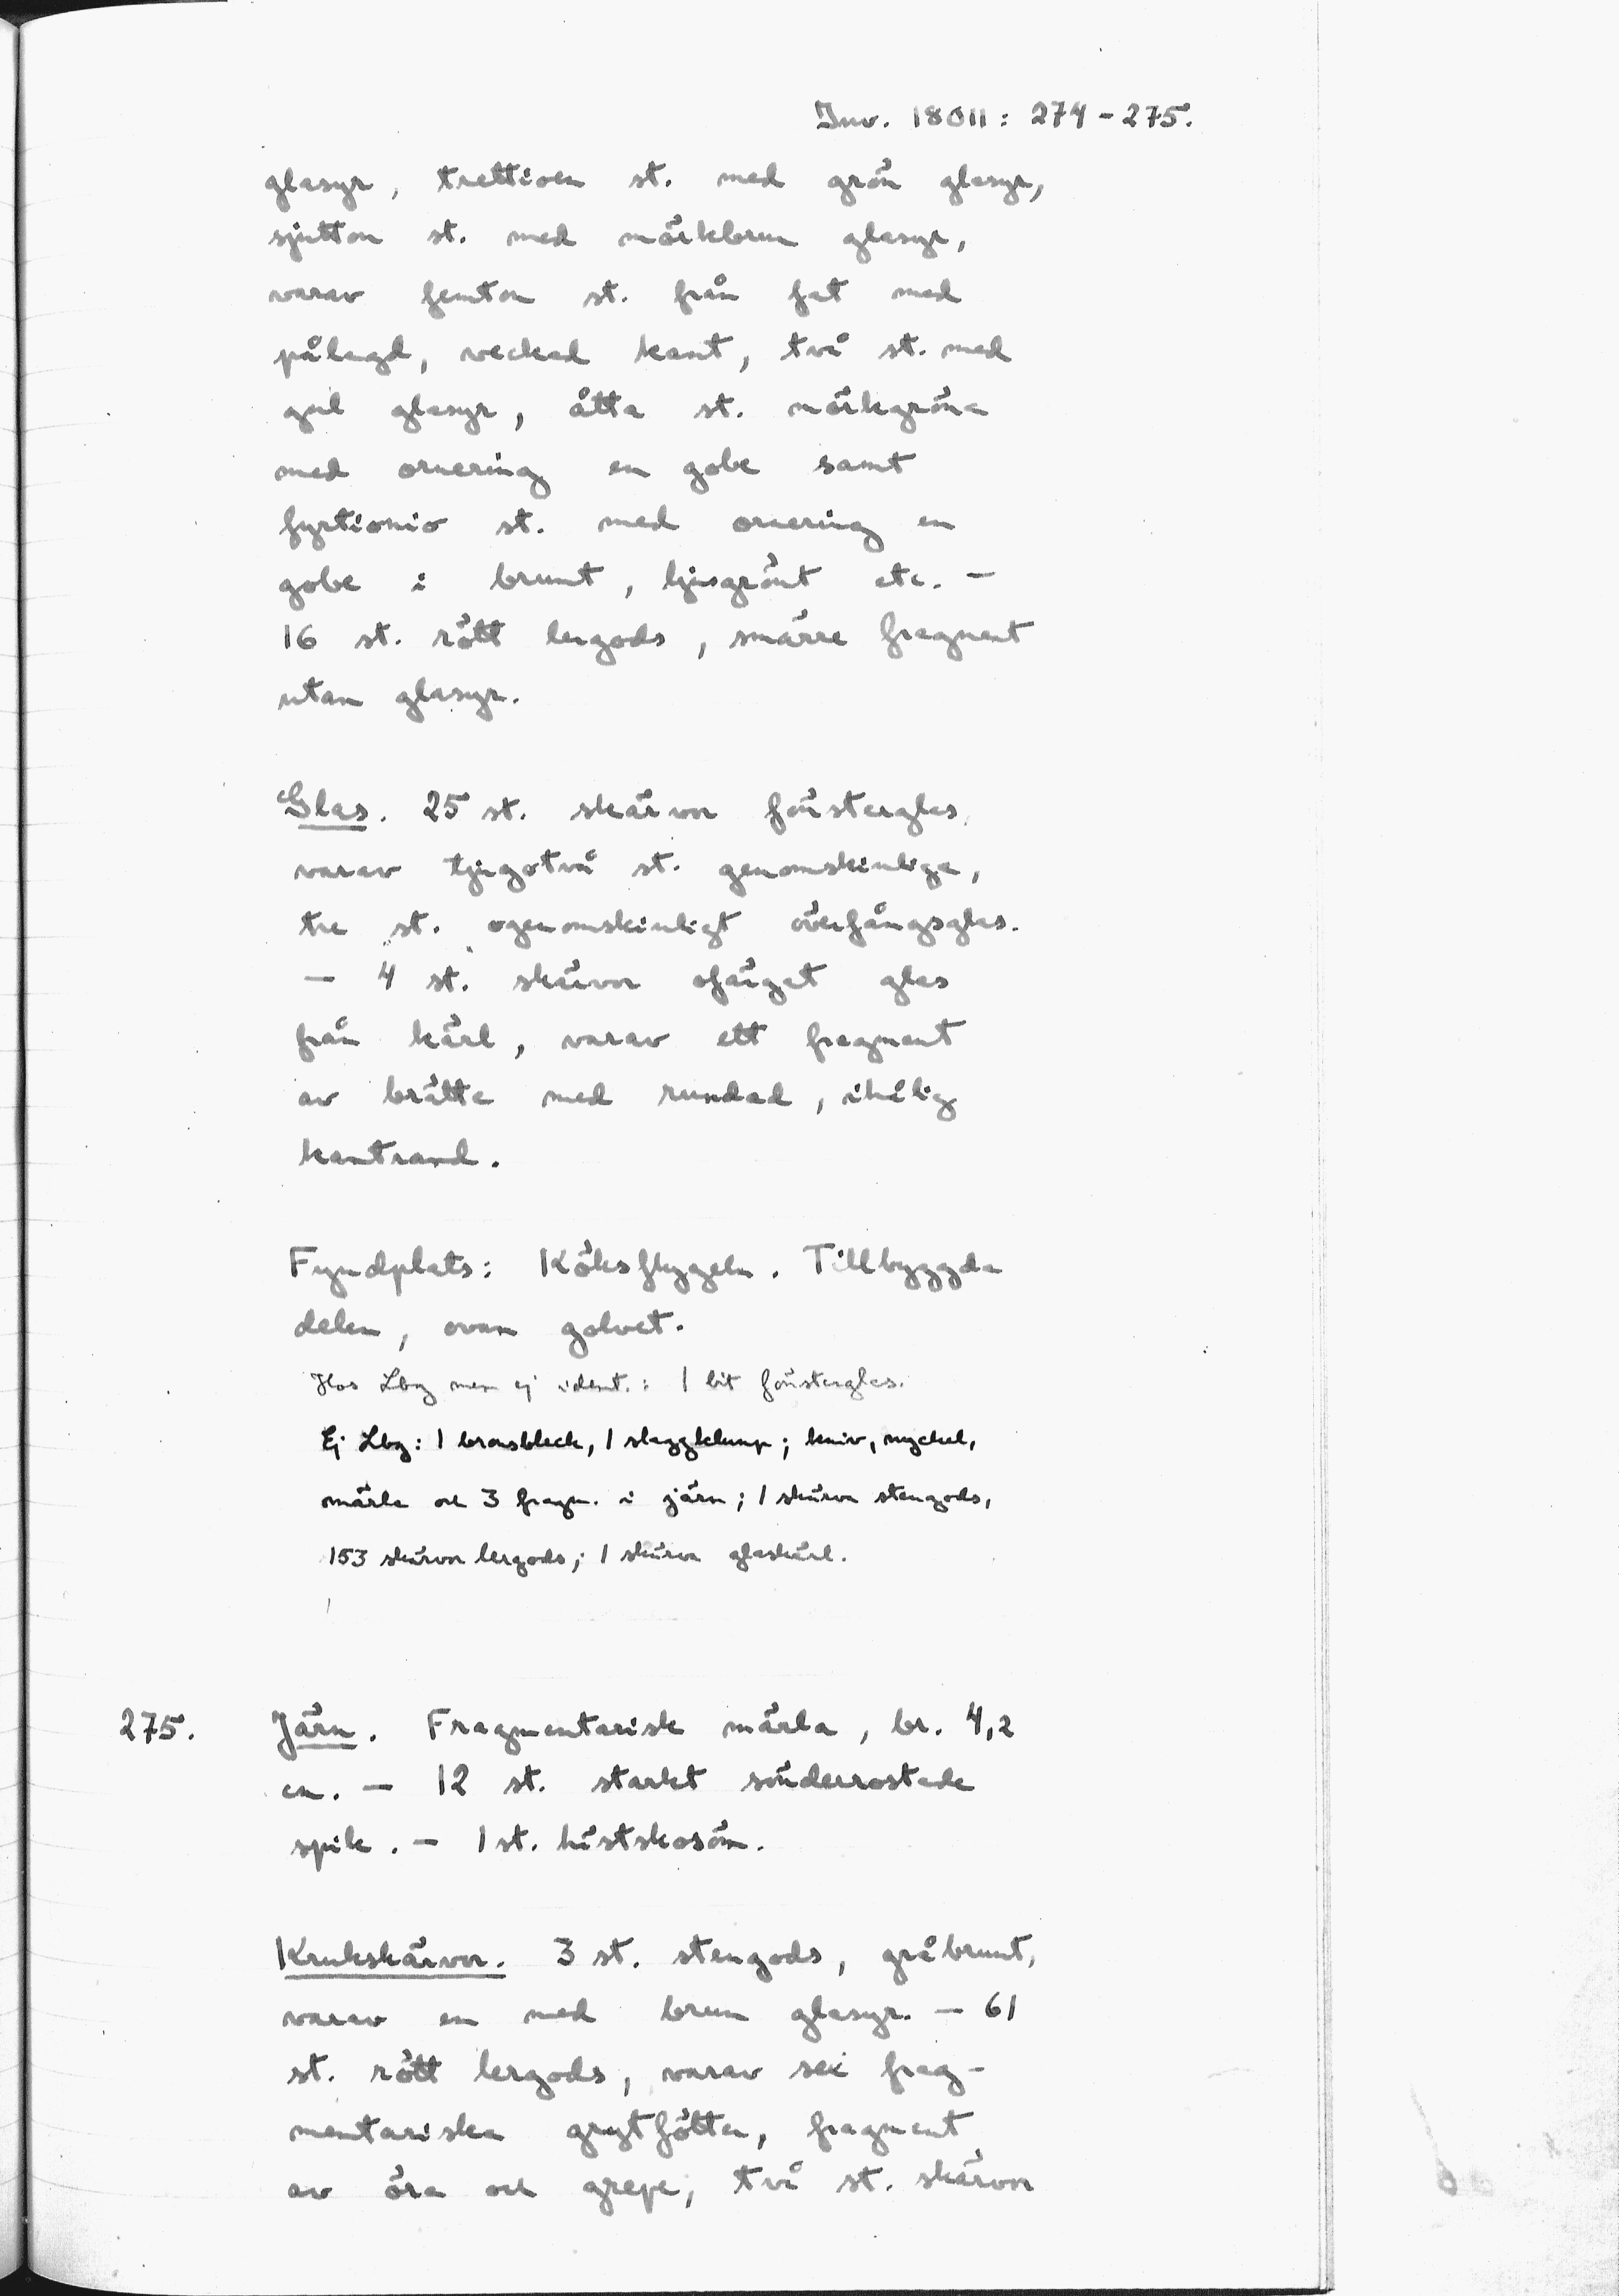 Inv. 18011: 274-275.
glasyr, trettioen st. med grön glasyr,
sjutton st. med mörkbrun glasyr,
varav femton st. från fat med
pålagd, veckad kant, två st. med
gul glasyr, åtta st. mörkgröna
med ornering en gobe samt
fyrtionio st. med ornering en
gobe i brunt, ljusgrönt etc. —
16 st. rött lergods, smärre fragment
utan glasyr.
Glas. 25 st. skärvor fönsterglas,
varav tjugotvå st. genomskinliga,
tre st. ogenomskinligt överfångsglas.
— 4 st. skärvor ofärgat glas
från kärl, varav ett fragment
av brätte med rundad, ihålig
kantrand.
Fyndplats: Köksflygeln. Tillbyggda
delen, ovan golvet.
Hos Lbg men ej ident.: 1 bit fönsterglas.
Ej Lbg: 1 bronsbleck, 1 slaggklump; kniv, nyckel,
märla och 3 fragm. i järn; 1 skärva stengods,
153 skärvor lergods; 1 skärva glaskärl.
275. Järn. Fragmentarisk märla, br. 4,2
cm. — 12 st. starkt sönderrostade
spik. — 1 st. hästskosöm.
Krukskärvor. 3 st. stengods, gråbrunt,
varav en med brun glasyr. — 61
st. rött lergods, varav sex frag-
mentariska grytfötter, fragment
av öra och grepe, två st. skärvor